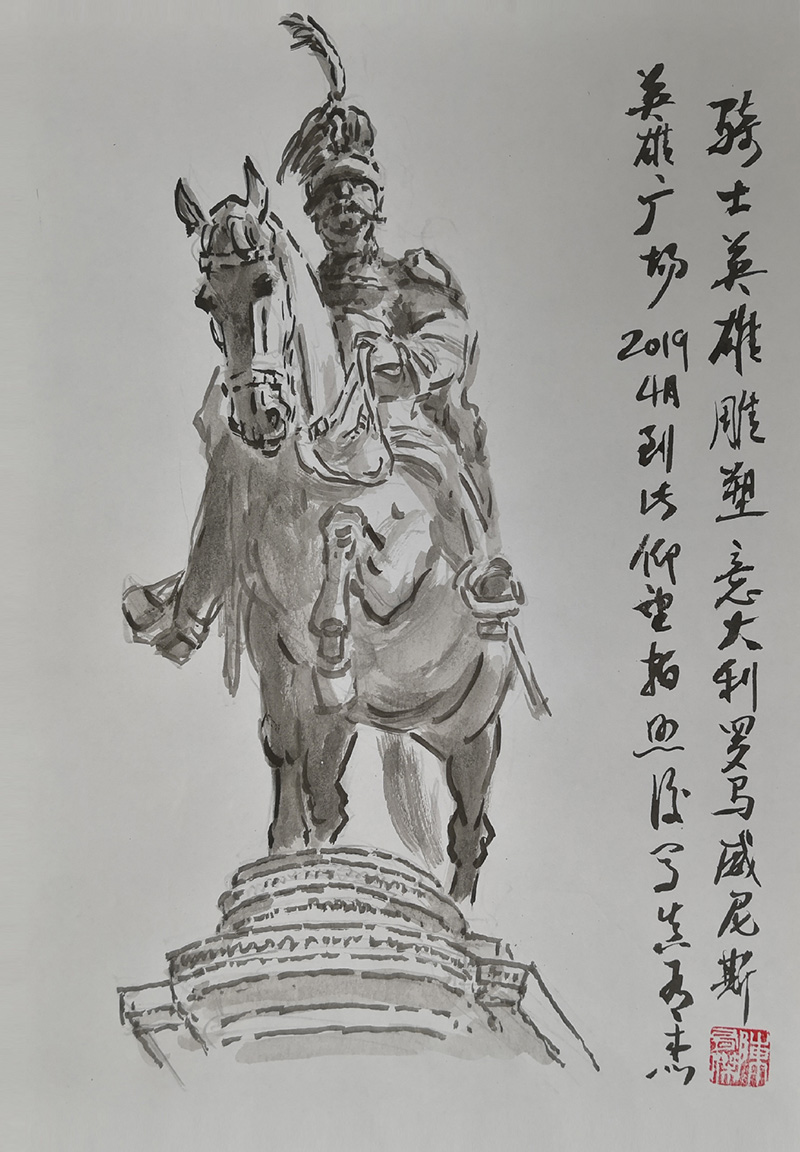 骑士英雄雕塑意大利罗马威尼斯
英雄广场2019 4月到此仰望拍照後写真